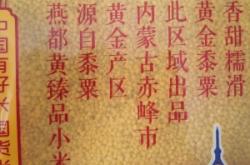 香甜糯滑
黄金黍粟
此区域出品
内蒙古赤峰市
黄金产区
源自黍粟
燕都黄臻品小米
中国有好米